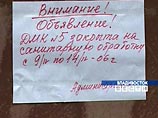 Внимание!
Объявление!
ДМК №5 закрыта на
санитарную обработку
с 9/IV по 14/IV-06г
Администрация
ВЛАДИВОСТОК